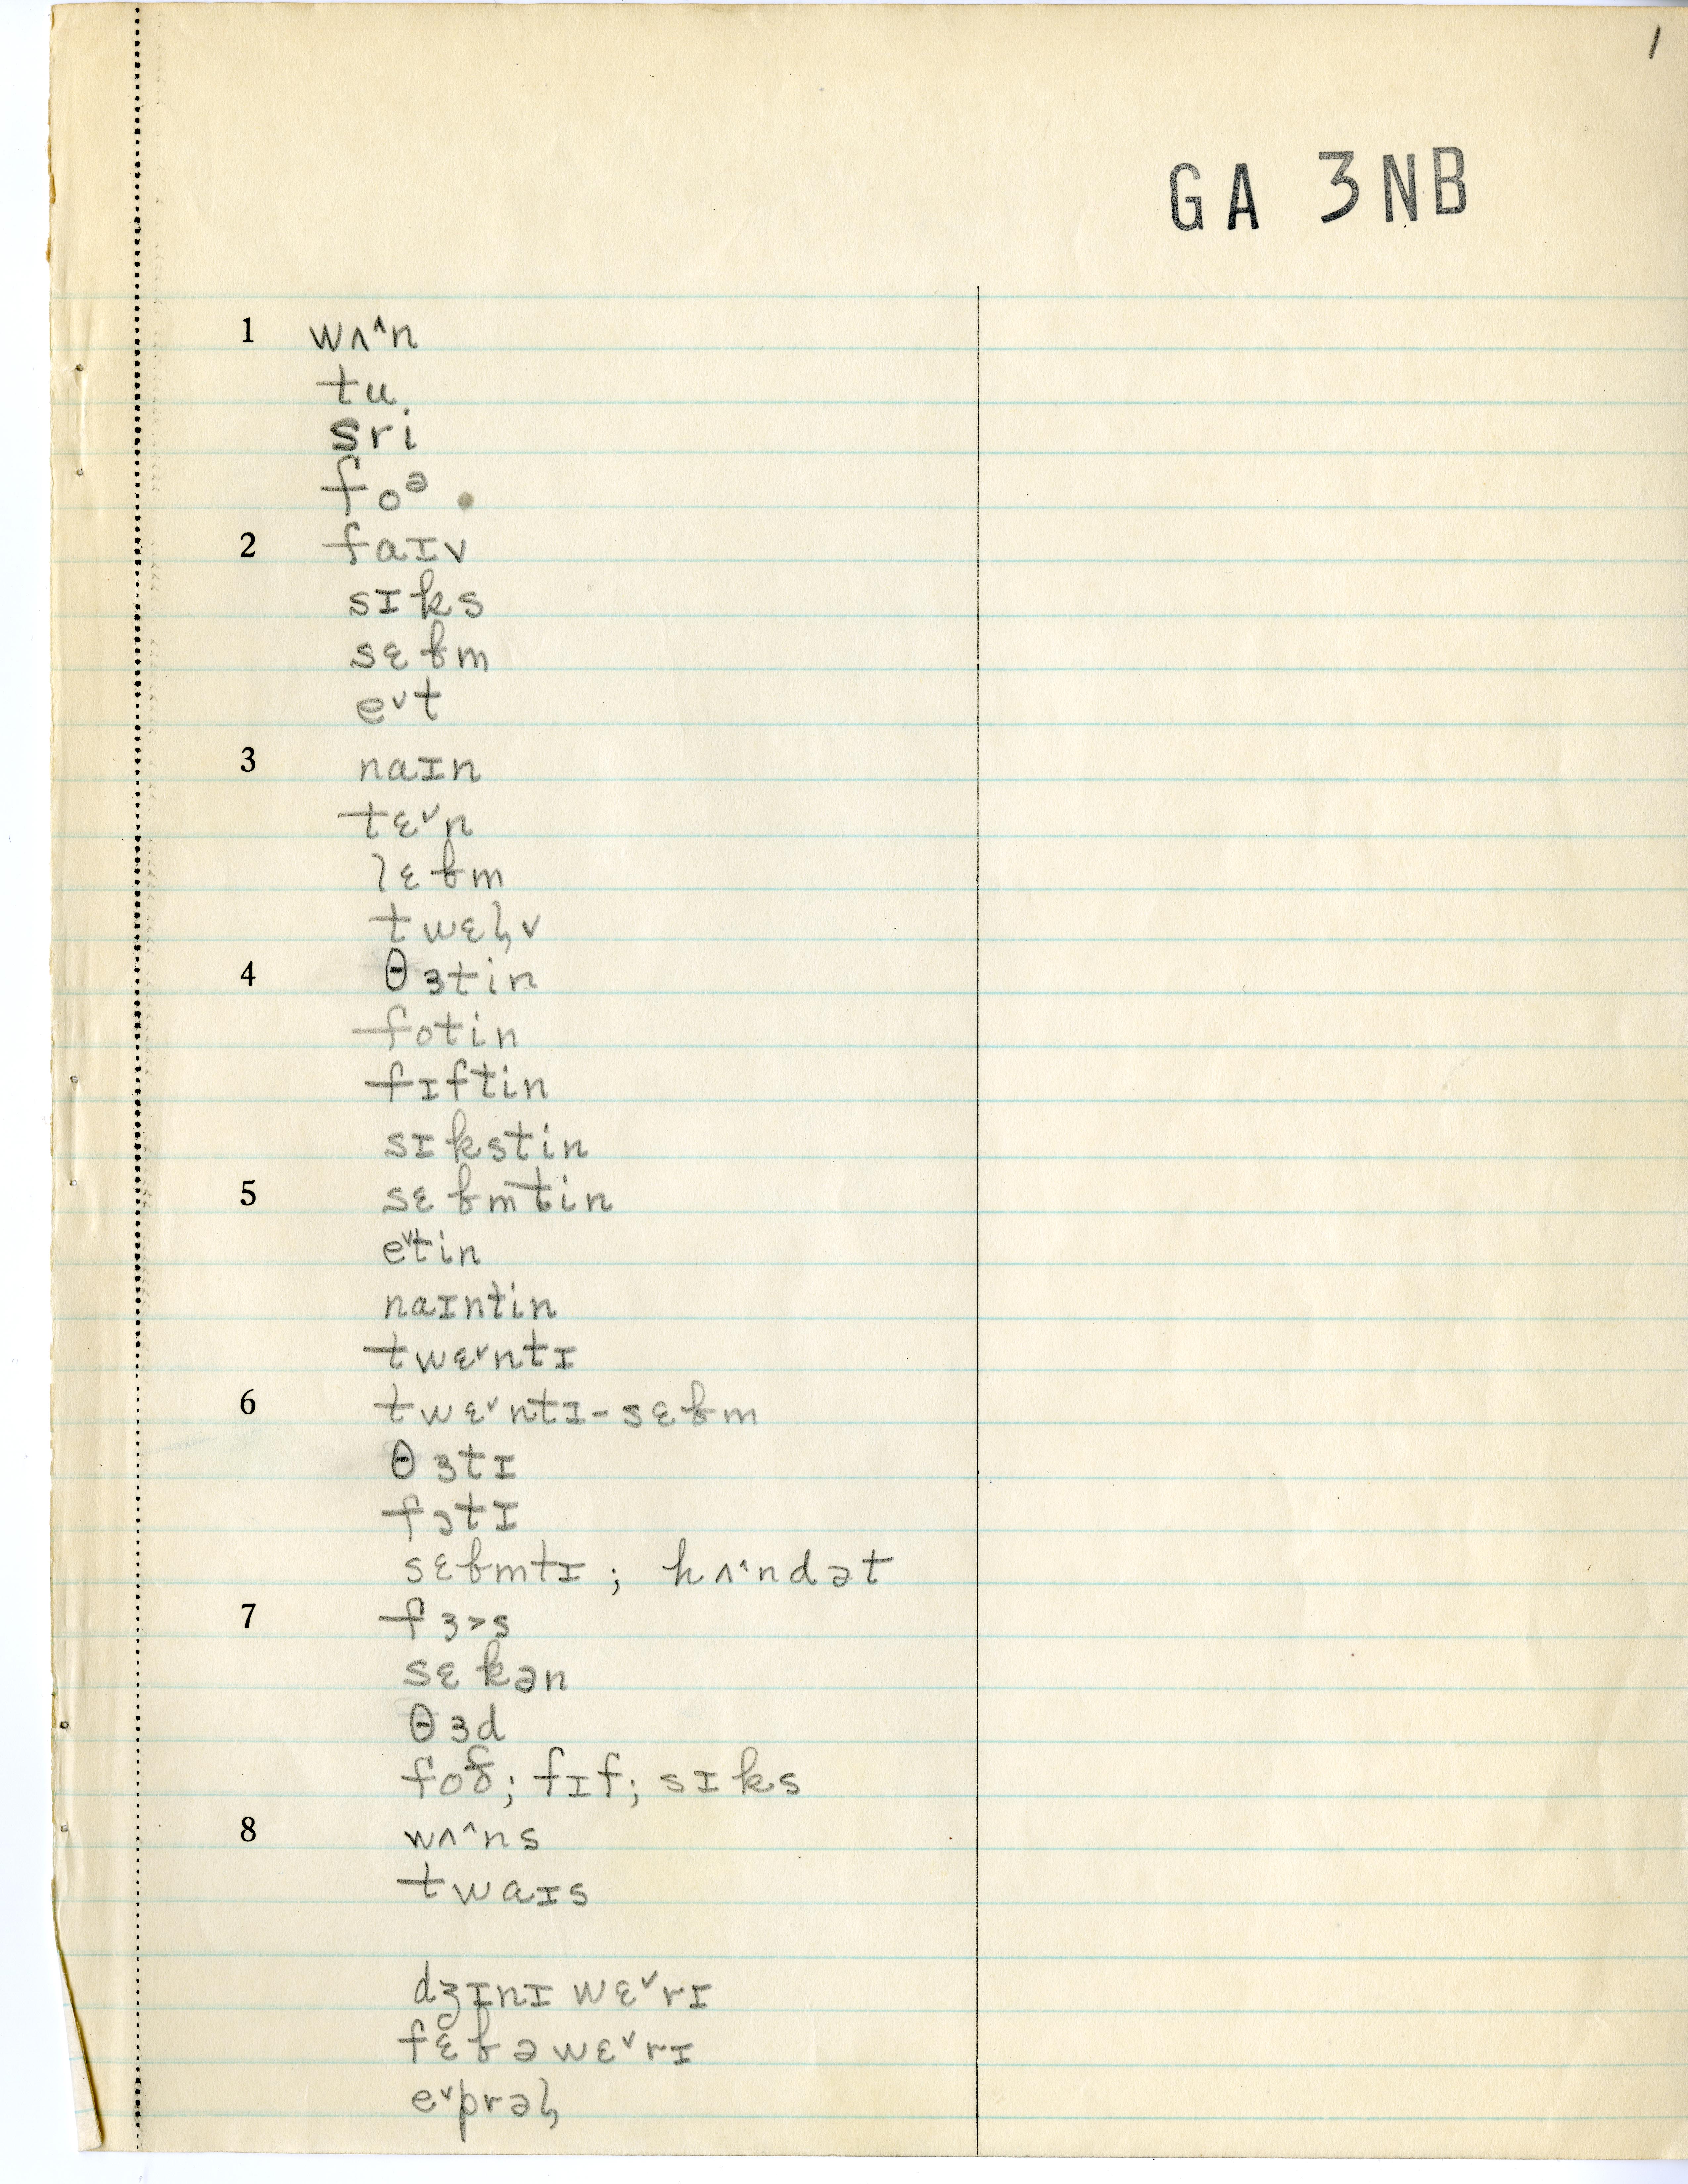 1
GA 3NB
1 wʌ˄n
tu
sri
foᵊ
2 faɪv
sɪks
sɛƀm
e˅t
3 naɪn
tɛ˅n
lɛƀm
twɛɫv
4 θɜtin
fotin
fɪftin
sɪkstin
5 sɛƀmtin
e˅tin
naɪntin
twɛ˅ntɪ
6 twɛ˅ntɪ-sɛƀm
θɜtɪ
fɔtɪ
sɛƀmtɪ; hʌ˄ndət
7 fɜ˃s
sɛkən
θɜd
; fɪf; sɪks
8 wʌ˄ns
twaɪs
dʒɪnɪwɛ˅rɪ
fɛƀəwɛ˅rɪ
e˅prəɫ